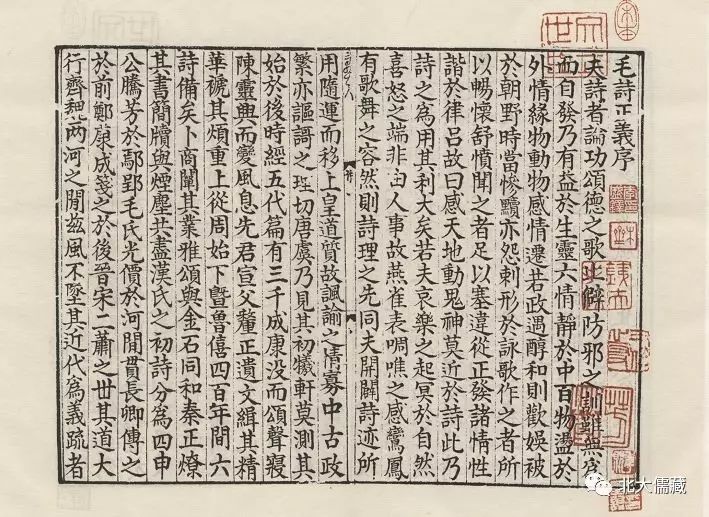 毛詩正義序
夫詩者論功頌德之歌止僻防邪之訓雖無爲
而自發乃有益於生靈六情靜於中百物盪於
外情緣物動物感情遷若政遇醇和則歡娛被
於朝野時當慘黷亦怨剌形於詠歌作之者所
以暢懷舒憤聞之者足以塞違從正發諸情性
諧於律呂故曰感天地動鬼神莫近於詩此乃
詩之爲用其利大矣若夫哀樂之起冥於自然
喜怒之端非由人事故燕雀表啁噍之感鸞鳳
有歌舞之容然則詩理之先同夫開闢詩迹所
用隨運而移上皇道質故諷諭之情寡中古政
繁亦謳謌之理切唐虞乃見其初犧軒莫測其
始於後時經五代篇有三千成康没而頌聲寢
陳靈興而變風息先君宣父釐正遺文緝其精
華褫其煩重上從周始下曁魯僖四百年間六
詩備矣卜商闡其業雅頌與金石同和秦正燎
其書簡牘與煙塵共盡漢氏之初詩分爲四申
公騰芳於鄢郢毛氏光價於河閒貫長卿傳之
於前鄭康成箋之於後晉宋二蕭之世其道大
行齊魏兩河之閒兹風不墜其近代爲義疏者
北大儒藏